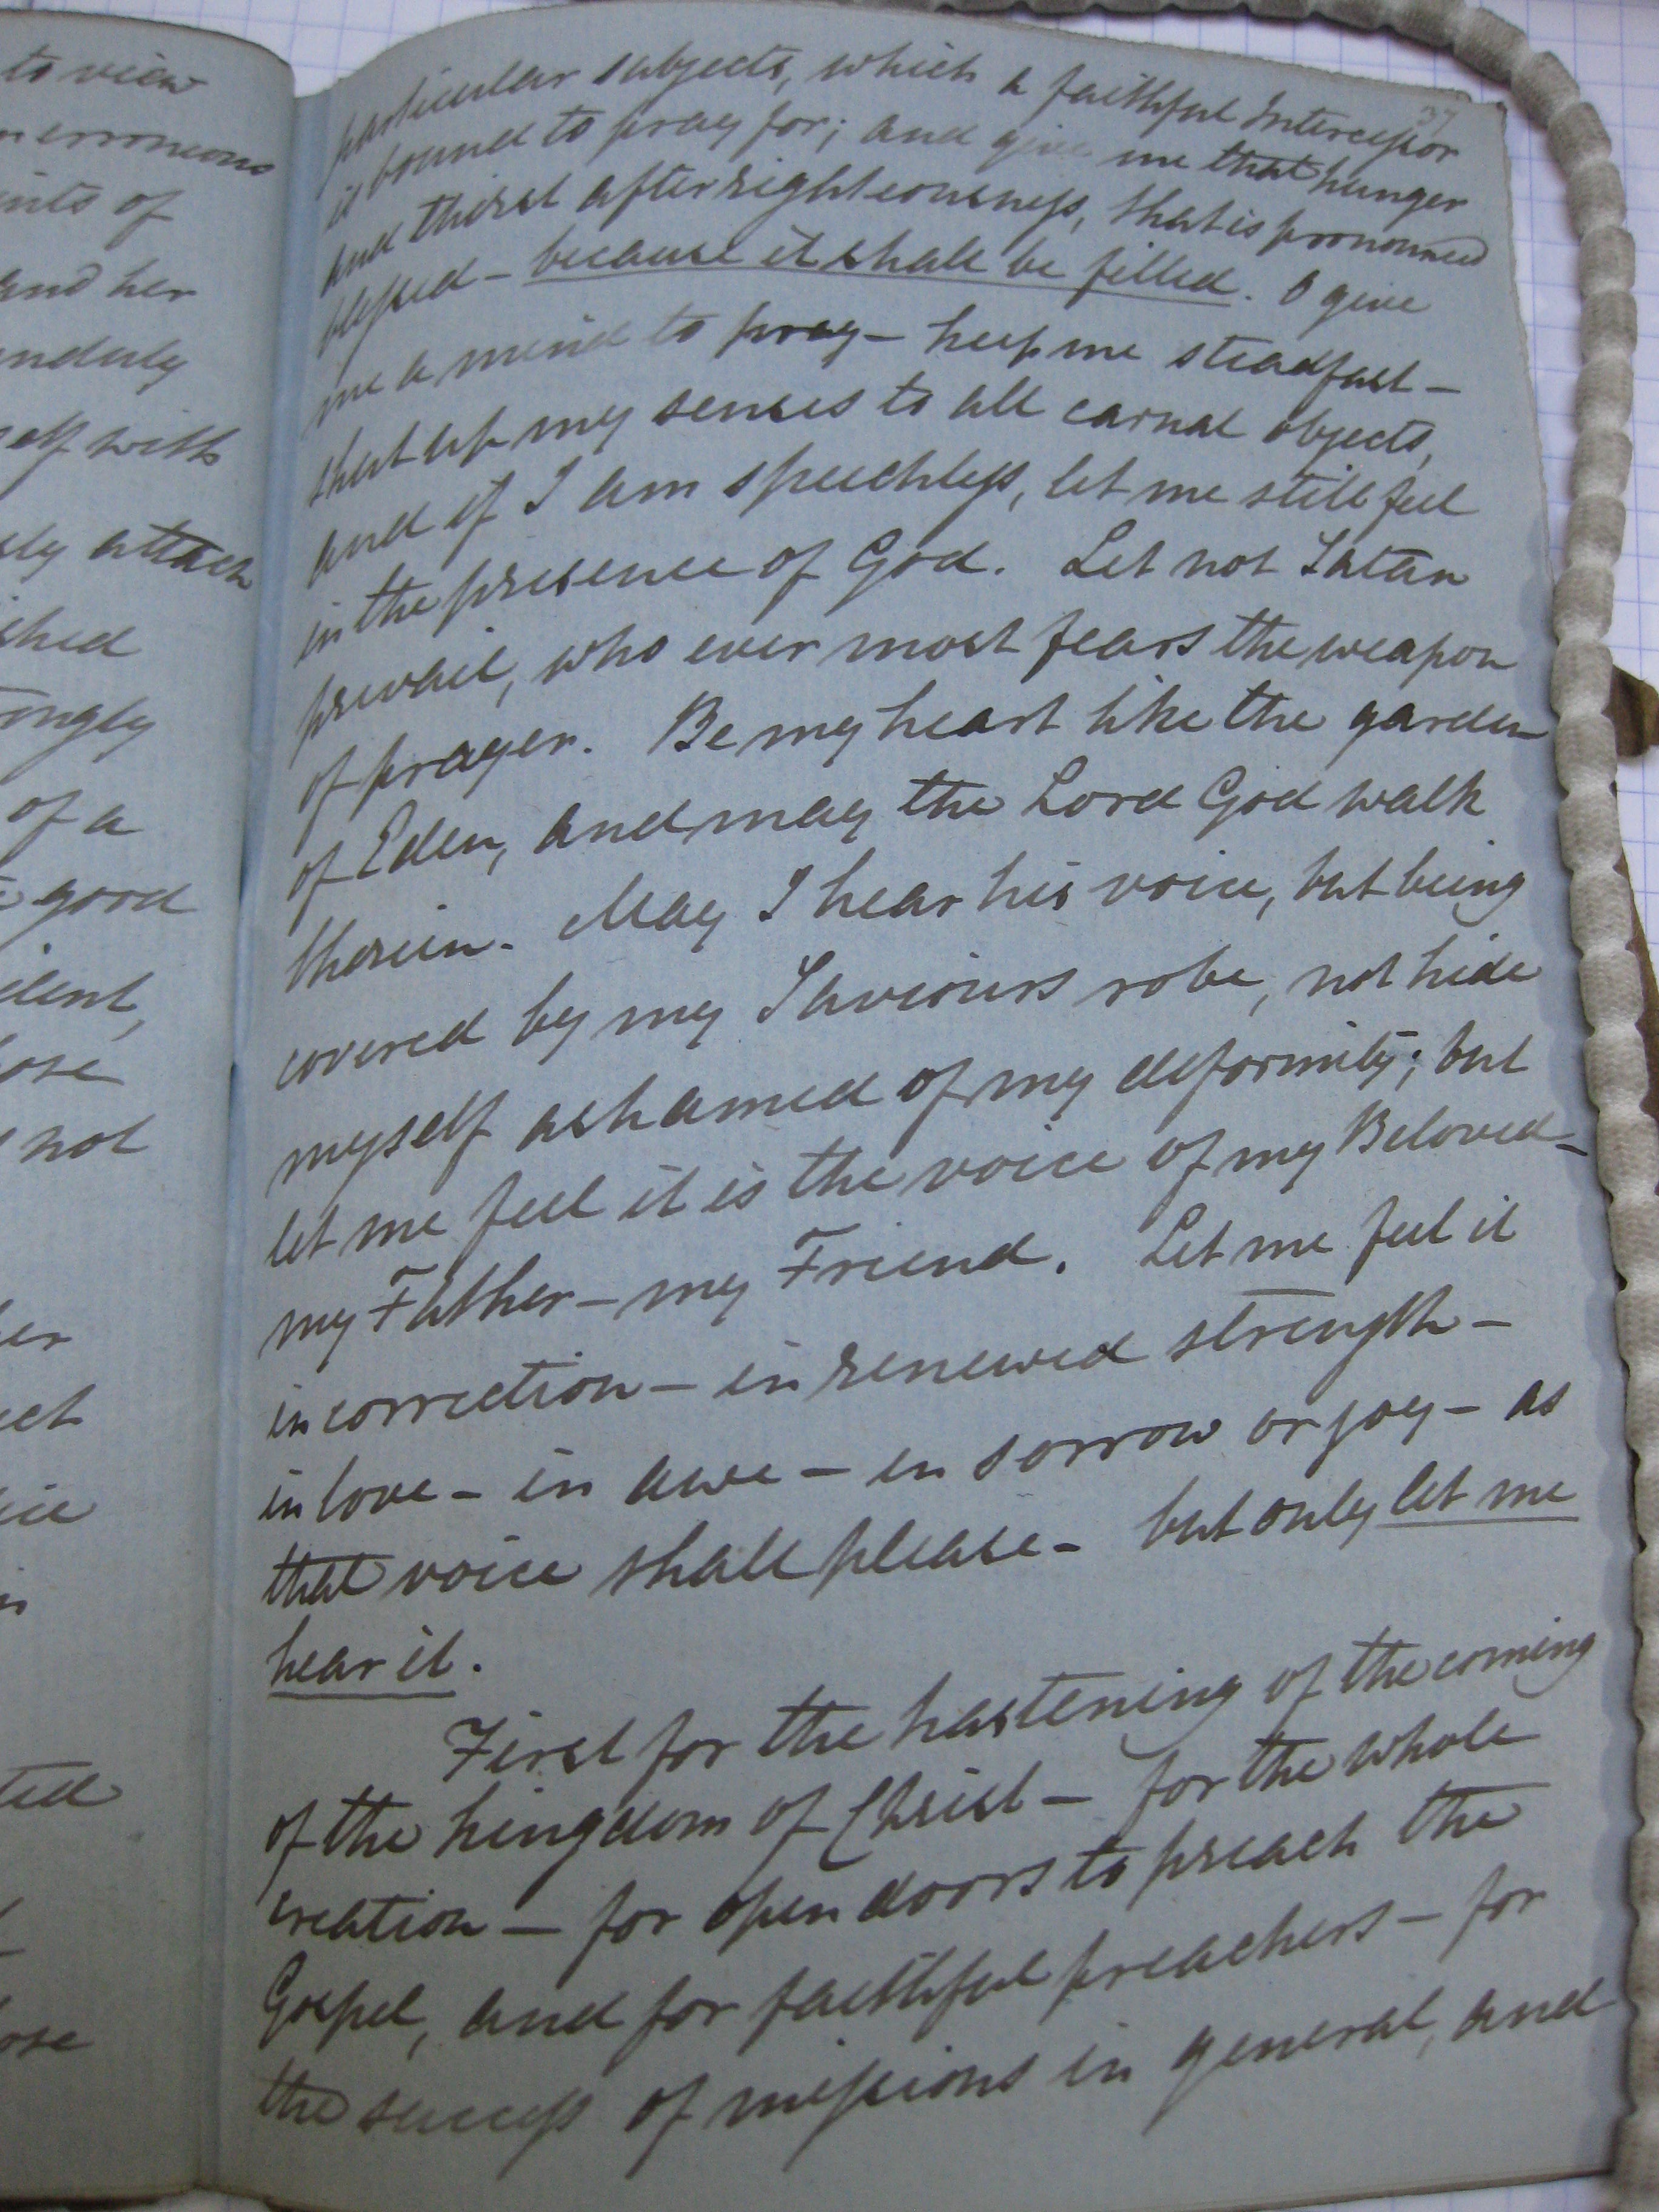 to view
erroneous
of
and her
unduly
self with
attach
of a
good
not
37
particular subjects, which a faithful Intercessor
is bound to pray for; and give me that hunger
and thirst after righteousness, that is pronounced
blessed – because it shall be filled. O give
me a mind to pray – keep me steadfast –
shut up my senses to all carnal objects,
and if I am speechless, let me still feel
in the presence of God. Let not Satan
prevail, who ever most fears the weapon
of prayer. Be my heart like the garden
of Eden, and may the Lord God walk
therein. May I hear his voice, but being
covered by my Saviours robe, not hide
myself ashamed of my deformity; but
let me feel it is the voice of my Beloved –
my Father – my Friend. Let me feel it
in correction – in renewed strength –
in love – in awe – in sorrow or joy – as
that voice shall please – but only let me
hear it.
First for the hastening of the coming
of the kingdom of Christ – for the whole
creation – for open doors to preach the
Gospel, and for faithful preachers – for
the success of missions in general, and